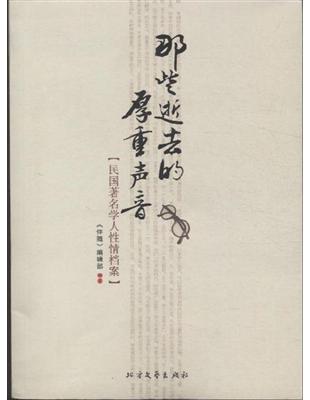 那些逝去的
厚重声音
【民国著名学人性情档案】
《伴随》编辑部
北方文艺出版社